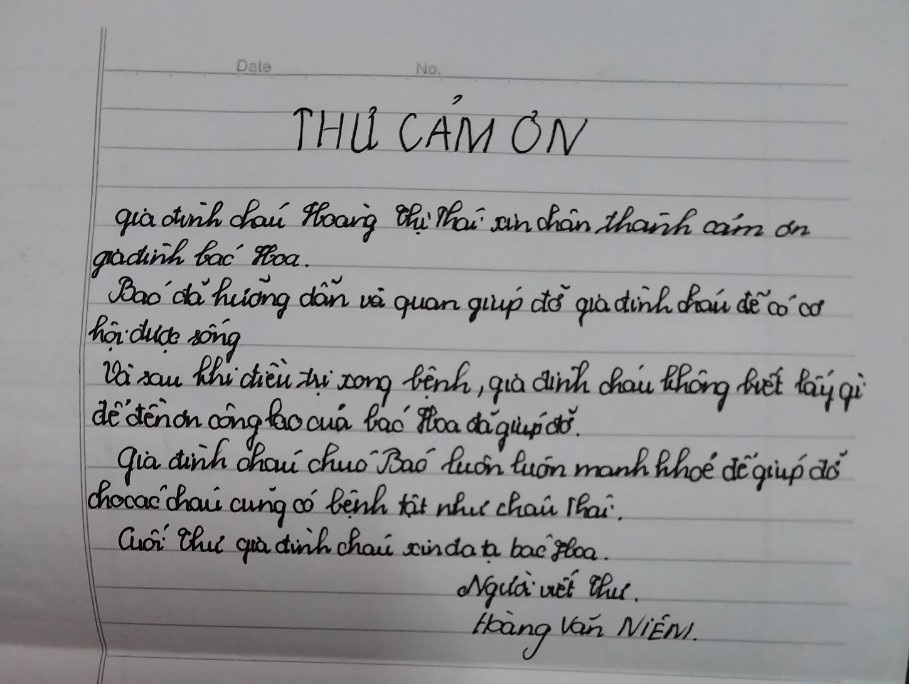 Date No.
THƯ CẢM ƠN
gia đình cháu Hoàng Thị Thái xin chân thành cảm ơn
gia đình bác Hoa.
Bác đã hướng dẫn và quan giúp đỡ gia đình cháu để có cơ
hội được sống
Và sau khi điều trị xong bệnh, gia đình cháu không biết lấy gì
để đền ơn công lao của bác Hoa đã giúp đỡ.
Gia đình cháu chúc Bác luôn luôn mạnh khoẻ để giúp đỡ
cho các cháu cũng có bệnh tật như cháu Thái.
Cuối thư gia đình cháu xin đa tạ bác Hoa.
Người viết thư.
Hoàng Văn NIÊM.